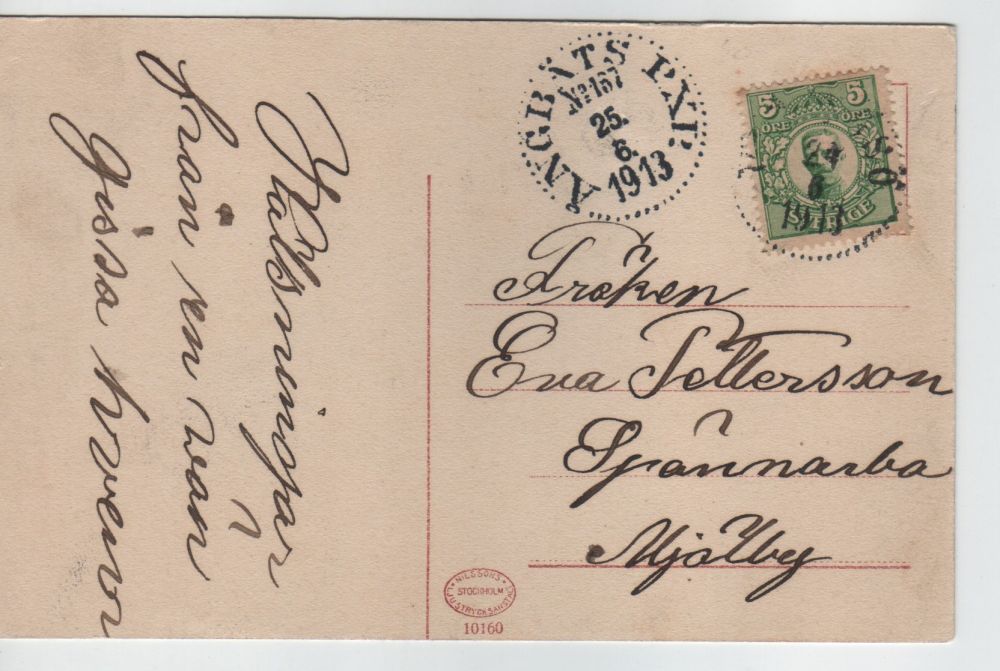 Hälsningar
från en wän
Gissa hwem
ÅNGBÅTS PXP.
Nº 167
25.
6.
1913
5 5
ÖRE ÖRE
SVERIGE
24
6
1913
Fröken
Eva Pettersson
Spännarbo
Mjölby
NILSSONS
STOCKHOLM
LJUSTRYCKSANSTALT
10160